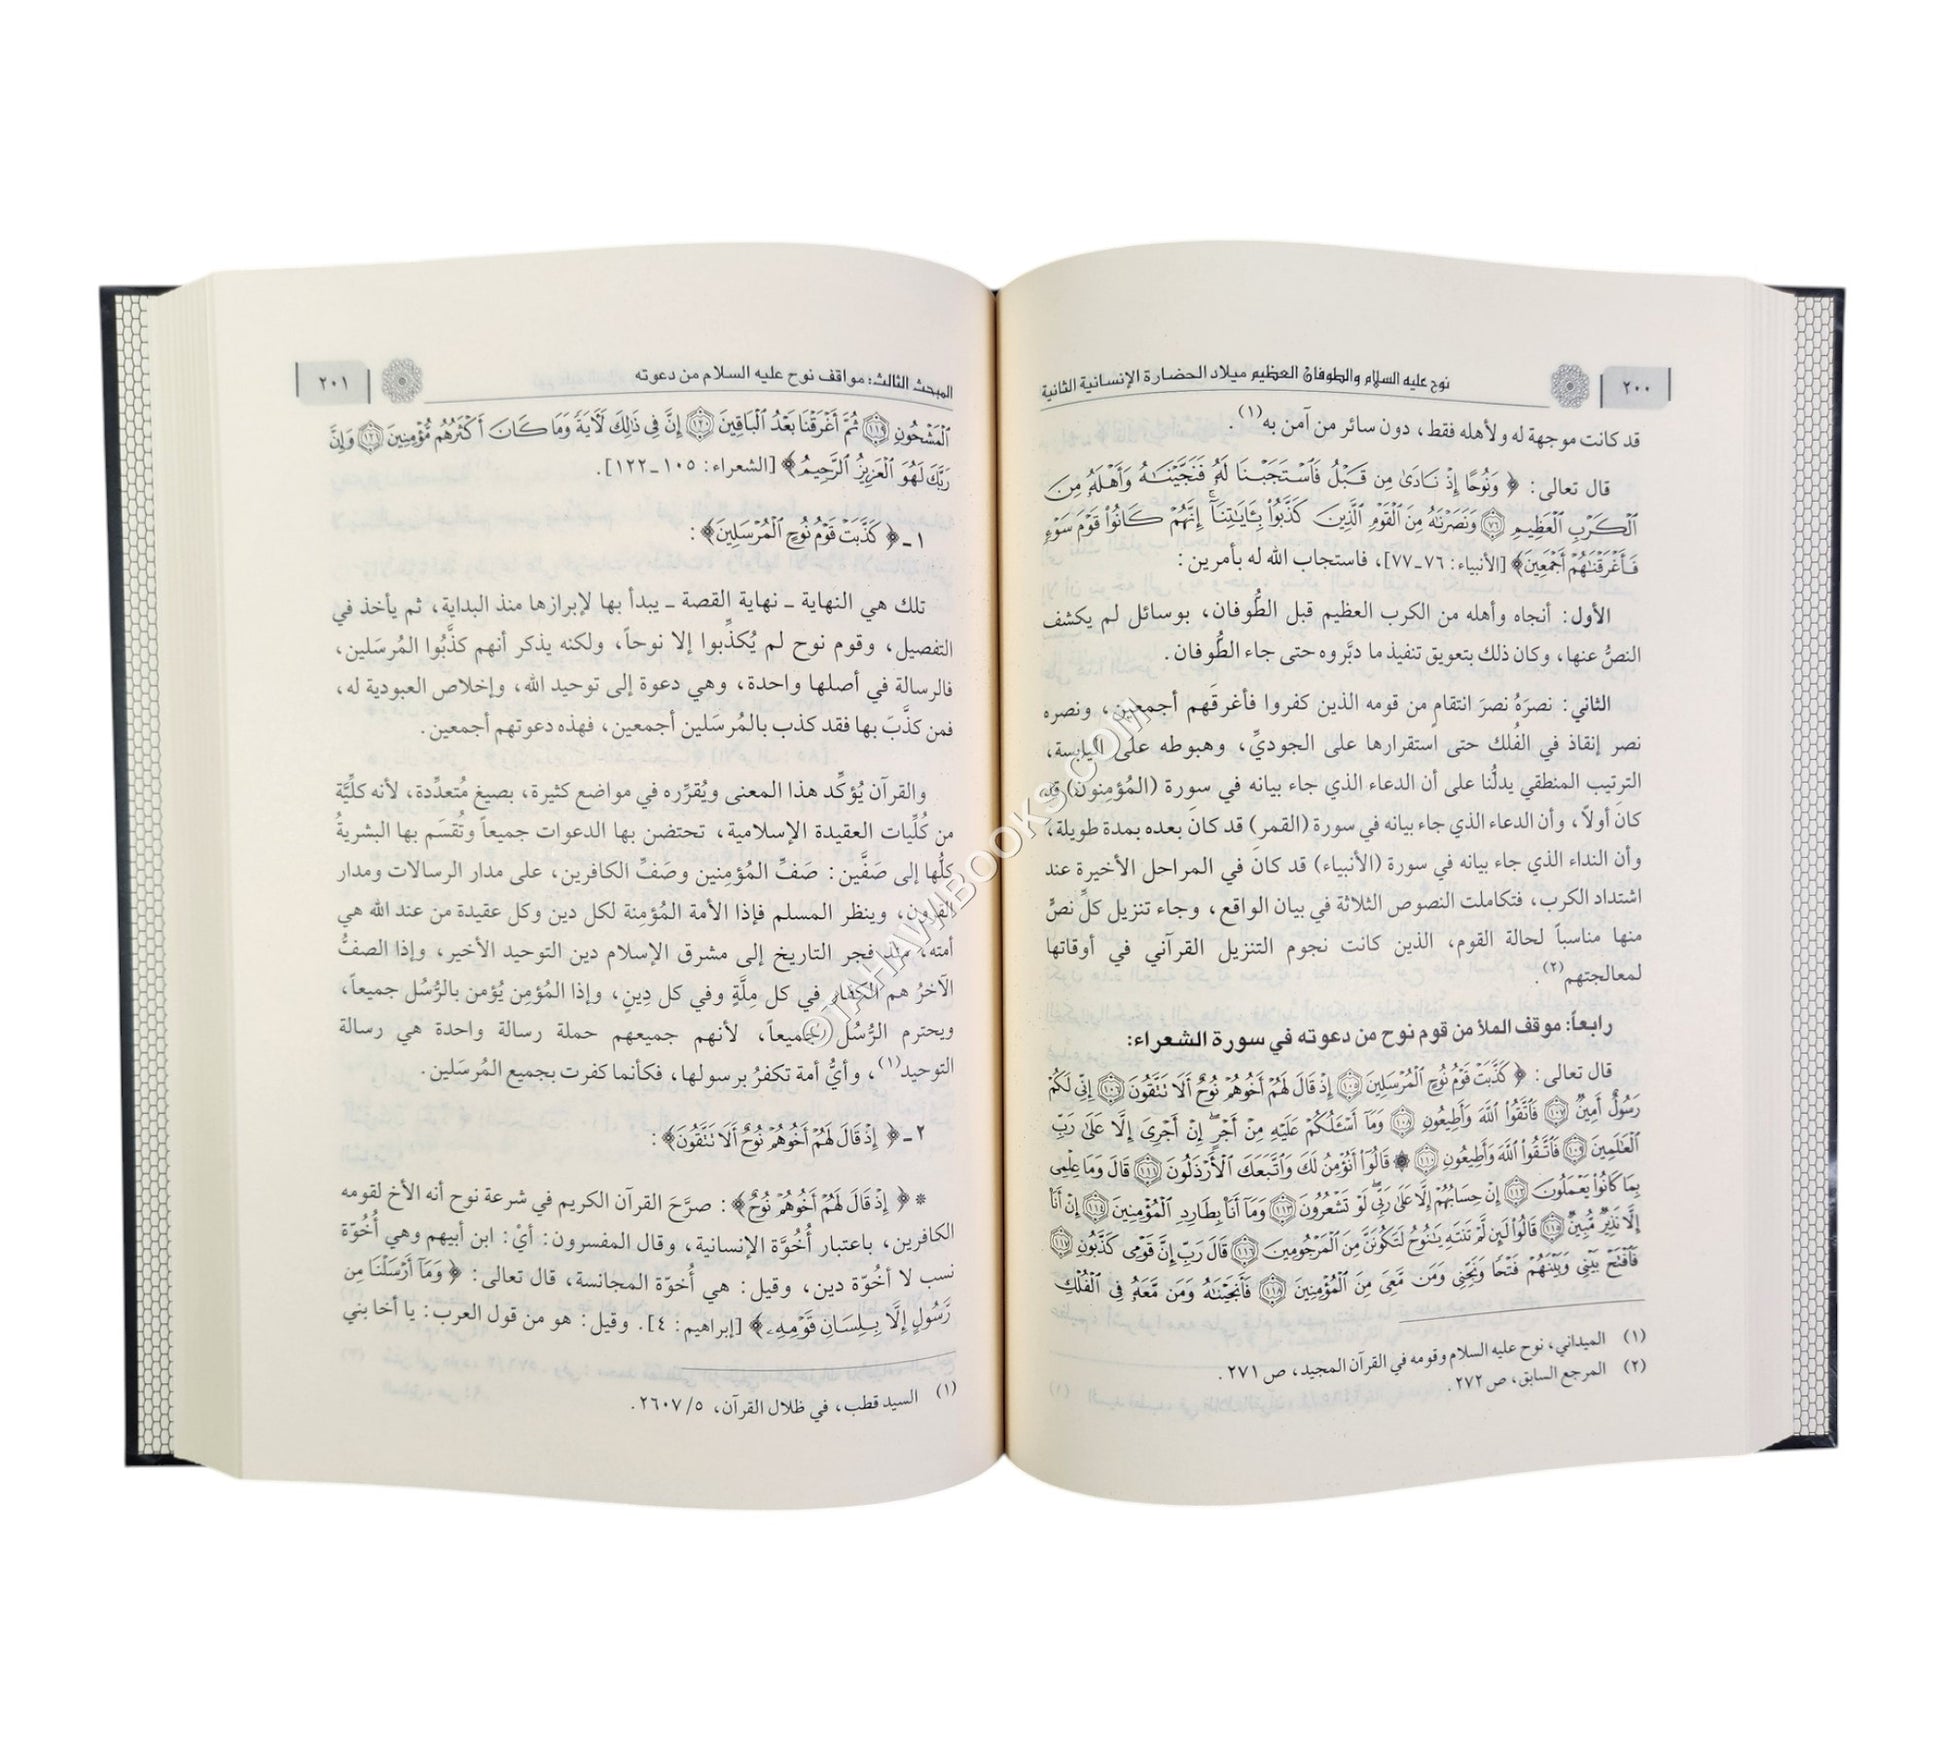 ٢٠٠
نوح عليه السلام والطوفان العظيم ميلاد الحضارة الإنسانية الثانية
قد كانت موجهة له ولأهله فقط، دون سائر من آمن به(١).
قال تعالى: ﴿ وَنُوحًا إِذْ نَادَىٰ مِن قَبْلُ فَٱسْتَجَبْنَا لَهُۥ فَنَجَّيْنَٰهُ وَأَهْلَهُۥ مِنَ
ٱلْكَرْبِ ٱلْعَظِيمِ ۝٧٦ وَنَصَرْنَٰهُ مِنَ ٱلْقَوْمِ ٱلَّذِينَ كَذَّبُوا۟ بِـَٔايَٰتِنَآ ۚ إِنَّهُمْ كَانُوا۟ قَوْمَ سَوْءٍ
فَأَغْرَقْنَٰهُمْ أَجْمَعِينَ﴾ [الأنبياء: ٧٦-٧٧]، فاستجاب الله له بأمرين:
الأول: أنجاه وأهله من الكرب العظيم قبل الطُّوفان، بوسائل لم يكشف
النصُّ عنها، وكان ذلك بتعويق تنفيذ ما دبَّروه حتى جاء الطُّوفان.
الثاني: نصرَهُ نصرَ انتقامٍ من قومه الذين كفروا فأغرقَهم أجمعين، ونصره
نصر إنقاذ في الفُلك حتى استقرارها على الجوديِّ، وهبوطه على اليابسة،
الترتيب المنطقي يدلُّنا على أن الدعاء الذي جاء بيانه في سورة (المُؤمِنون) قد
كانَ أولاً، وأن الدعاء الذي جاء بيانه في سورة (القمر) قد كانَ بعده بمدة طويلة،
وأن النداء الذي جاء بيانه في سورة (الأنبياء) قد كانَ في المراحل الأخيرة عند
اشتداد الكرب، فتكاملت النصوص الثلاثة في بيان الواقع، وجاء تنزيل كلِّ نصٍّ
منها مناسباً لحالة القوم، الذين كانت نجوم التنزيل القرآني في أوقاتها
لمعالجتهم(٢).
رابعاً: موقف الملأ من قوم نوح من دعوته في سورة الشعراء:
قال تعالى: ﴿ كَذَّبَتْ قَوْمُ نُوحٍ ٱلْمُرْسَلِينَ ۝١٠٥ إِذْ قَالَ لَهُمْ أَخُوهُمْ نُوحٌ أَلَا تَتَّقُونَ ۝١٠٦ إِنِّى لَكُمْ
رَسُولٌ أَمِينٌ ۝١٠٧ فَٱتَّقُوا۟ ٱللَّهَ وَأَطِيعُونِ ۝١٠٨ وَمَآ أَسْـَٔلُكُمْ عَلَيْهِ مِنْ أَجْرٍ ۖ إِنْ أَجْرِىَ إِلَّا عَلَىٰ رَبِّ
ٱلْعَٰلَمِينَ ۝١٠٩ فَٱتَّقُوا۟ ٱللَّهَ وَأَطِيعُونِ ۝١١٠ ۞ قَالُوٓا۟ أَنُؤْمِنُ لَكَ وَٱتَّبَعَكَ ٱلْأَرْذَلُونَ ۝١١١ قَالَ وَمَا عِلْمِى
بِمَا كَانُوا۟ يَعْمَلُونَ ۝١١٢ إِنْ حِسَابُهُمْ إِلَّا عَلَىٰ رَبِّى ۖ لَوْ تَشْعُرُونَ ۝١١٣ وَمَآ أَنَا۠ بِطَارِدِ ٱلْمُؤْمِنِينَ ۝١١٤ إِنْ أَنَا۠
إِلَّا نَذِيرٌ مُّبِينٌ ۝١١٥ قَالُوا۟ لَئِن لَّمْ تَنتَهِ يَٰنُوحُ لَتَكُونَنَّ مِنَ ٱلْمَرْجُومِينَ ۝١١٦ قَالَ رَبِّ إِنَّ قَوْمِى كَذَّبُونِ ۝١١٧
فَٱفْتَحْ بَيْنِى وَبَيْنَهُمْ فَتْحًا وَنَجِّنِى وَمَن مَّعِىَ مِنَ ٱلْمُؤْمِنِينَ ۝١١٨ فَأَنجَيْنَٰهُ وَمَن مَّعَهُۥ فِى ٱلْفُلْكِ
(١) الميداني، نوح عليه السلام وقومه في القرآن المجيد، ص ٢٧١.
(٢) المرجع السابق، ص ٢٧٢.
المبحث الثالث: مواقف نوح عليه السلام من دعوته
٢٠١
ٱلْمَشْحُونِ ۝١١٩ ثُمَّ أَغْرَقْنَا بَعْدُ ٱلْبَاقِينَ ۝١٢٠ إِنَّ فِى ذَٰلِكَ لَءَايَةً وَمَا كَانَ أَكْثَرُهُم مُّؤْمِنِينَ ۝١٢١ وَإِنَّ
رَبَّكَ لَهُوَ ٱلْعَزِيزُ ٱلرَّحِيمُ﴾ [الشعراء: ١٠٥-١٢٢].
١- ﴿ كَذَّبَتْ قَوْمُ نُوحٍ ٱلْمُرْسَلِينَ﴾:
تلك هي النهاية - نهاية القصة - يبدأ بها لإبرازها منذ البداية، ثم يأخذ في
التفصيل، وقوم نوح لم يُكذِّبوا إلا نوحاً، ولكنه يذكر أنهم كذَّبُوا المُرسَلين،
فالرسالة في أصلها واحدة، وهي دعوة إلى توحيد الله، وإخلاص العبودية له،
فمن كذَّبَ بها فقد كذب بالمُرسَلين أجمعين، فهذه دعوتهم أجمعين.
والقرآن يُؤكِّد هذا المعنى ويُقرِّره في مواضع كثيرة، بصيغ مُتعدِّدة، لأنه كليَّة
من كُلِّيات العقيدة الإسلامية، تحتضن بها الدعوات جميعاً وتُقسَم بها البشريةُ
كلُّها إلى صَفَّين: صَفِّ المُؤمِنين وصَفِّ الكافرين، على مدار الرسالات ومدار
القرون، وينظر المسلم فإذا الأمة المُؤمِنة لكل دين وكل عقيدة من عند الله هي
أمته، منذ فجر التاريخ إلى مشرق الإسلام دين التوحيد الأخير، وإذا الصفُّ
الآخرُ هم الكفار في كل مِلَّةٍ وفي كل دِينٍ، وإذا المُؤمِن يُؤمن بالرُّسُل جميعاً،
ويحترم الرُّسُل جميعاً، لأنهم جميعهم حملة رسالة واحدة هي رسالة
التوحيد(١)، وأيُّ أمة تكفرُ برسولها، فكأنما كفرت بجميع المُرسَلين.
٢- ﴿ إِذْ قَالَ لَهُمْ أَخُوهُمْ نُوحٌ أَلَا تَتَّقُونَ﴾:
* ﴿ إِذْ قَالَ لَهُمْ أَخُوهُمْ نُوحٌ﴾: صرَّحَ القرآن الكريم في شرعة نوح أنه الأخ لقومه
الكافرين، باعتبار أُخُوَّة الإنسانية، وقال المفسرون: أيْ: ابن أبيهم وهي أُخُوّة
نسب لا أخُوّة دين، وقيل: هي أُخوّة المجانسة، قال تعالى: ﴿ وَمَآ أَرْسَلْنَا مِن
رَّسُولٍ إِلَّا بِلِسَانِ قَوْمِهِۦ﴾ [إبراهيم: ٤]. وقيل: هو من قول العرب: يا أخا بني
(١) السيد قطب، في ظلال القرآن، ٥/٢٦٠٧.